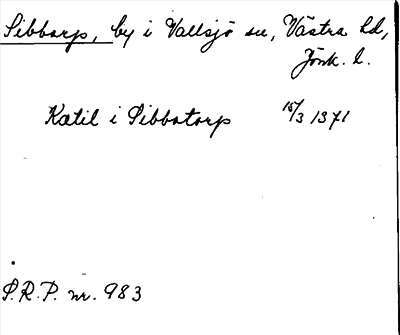 Sibbarp, by i Vallsjö sn, Västra hd,
Jönk. l.
Kætil i Sibbatorp 15/3 1371
S.R.P. nr. 983